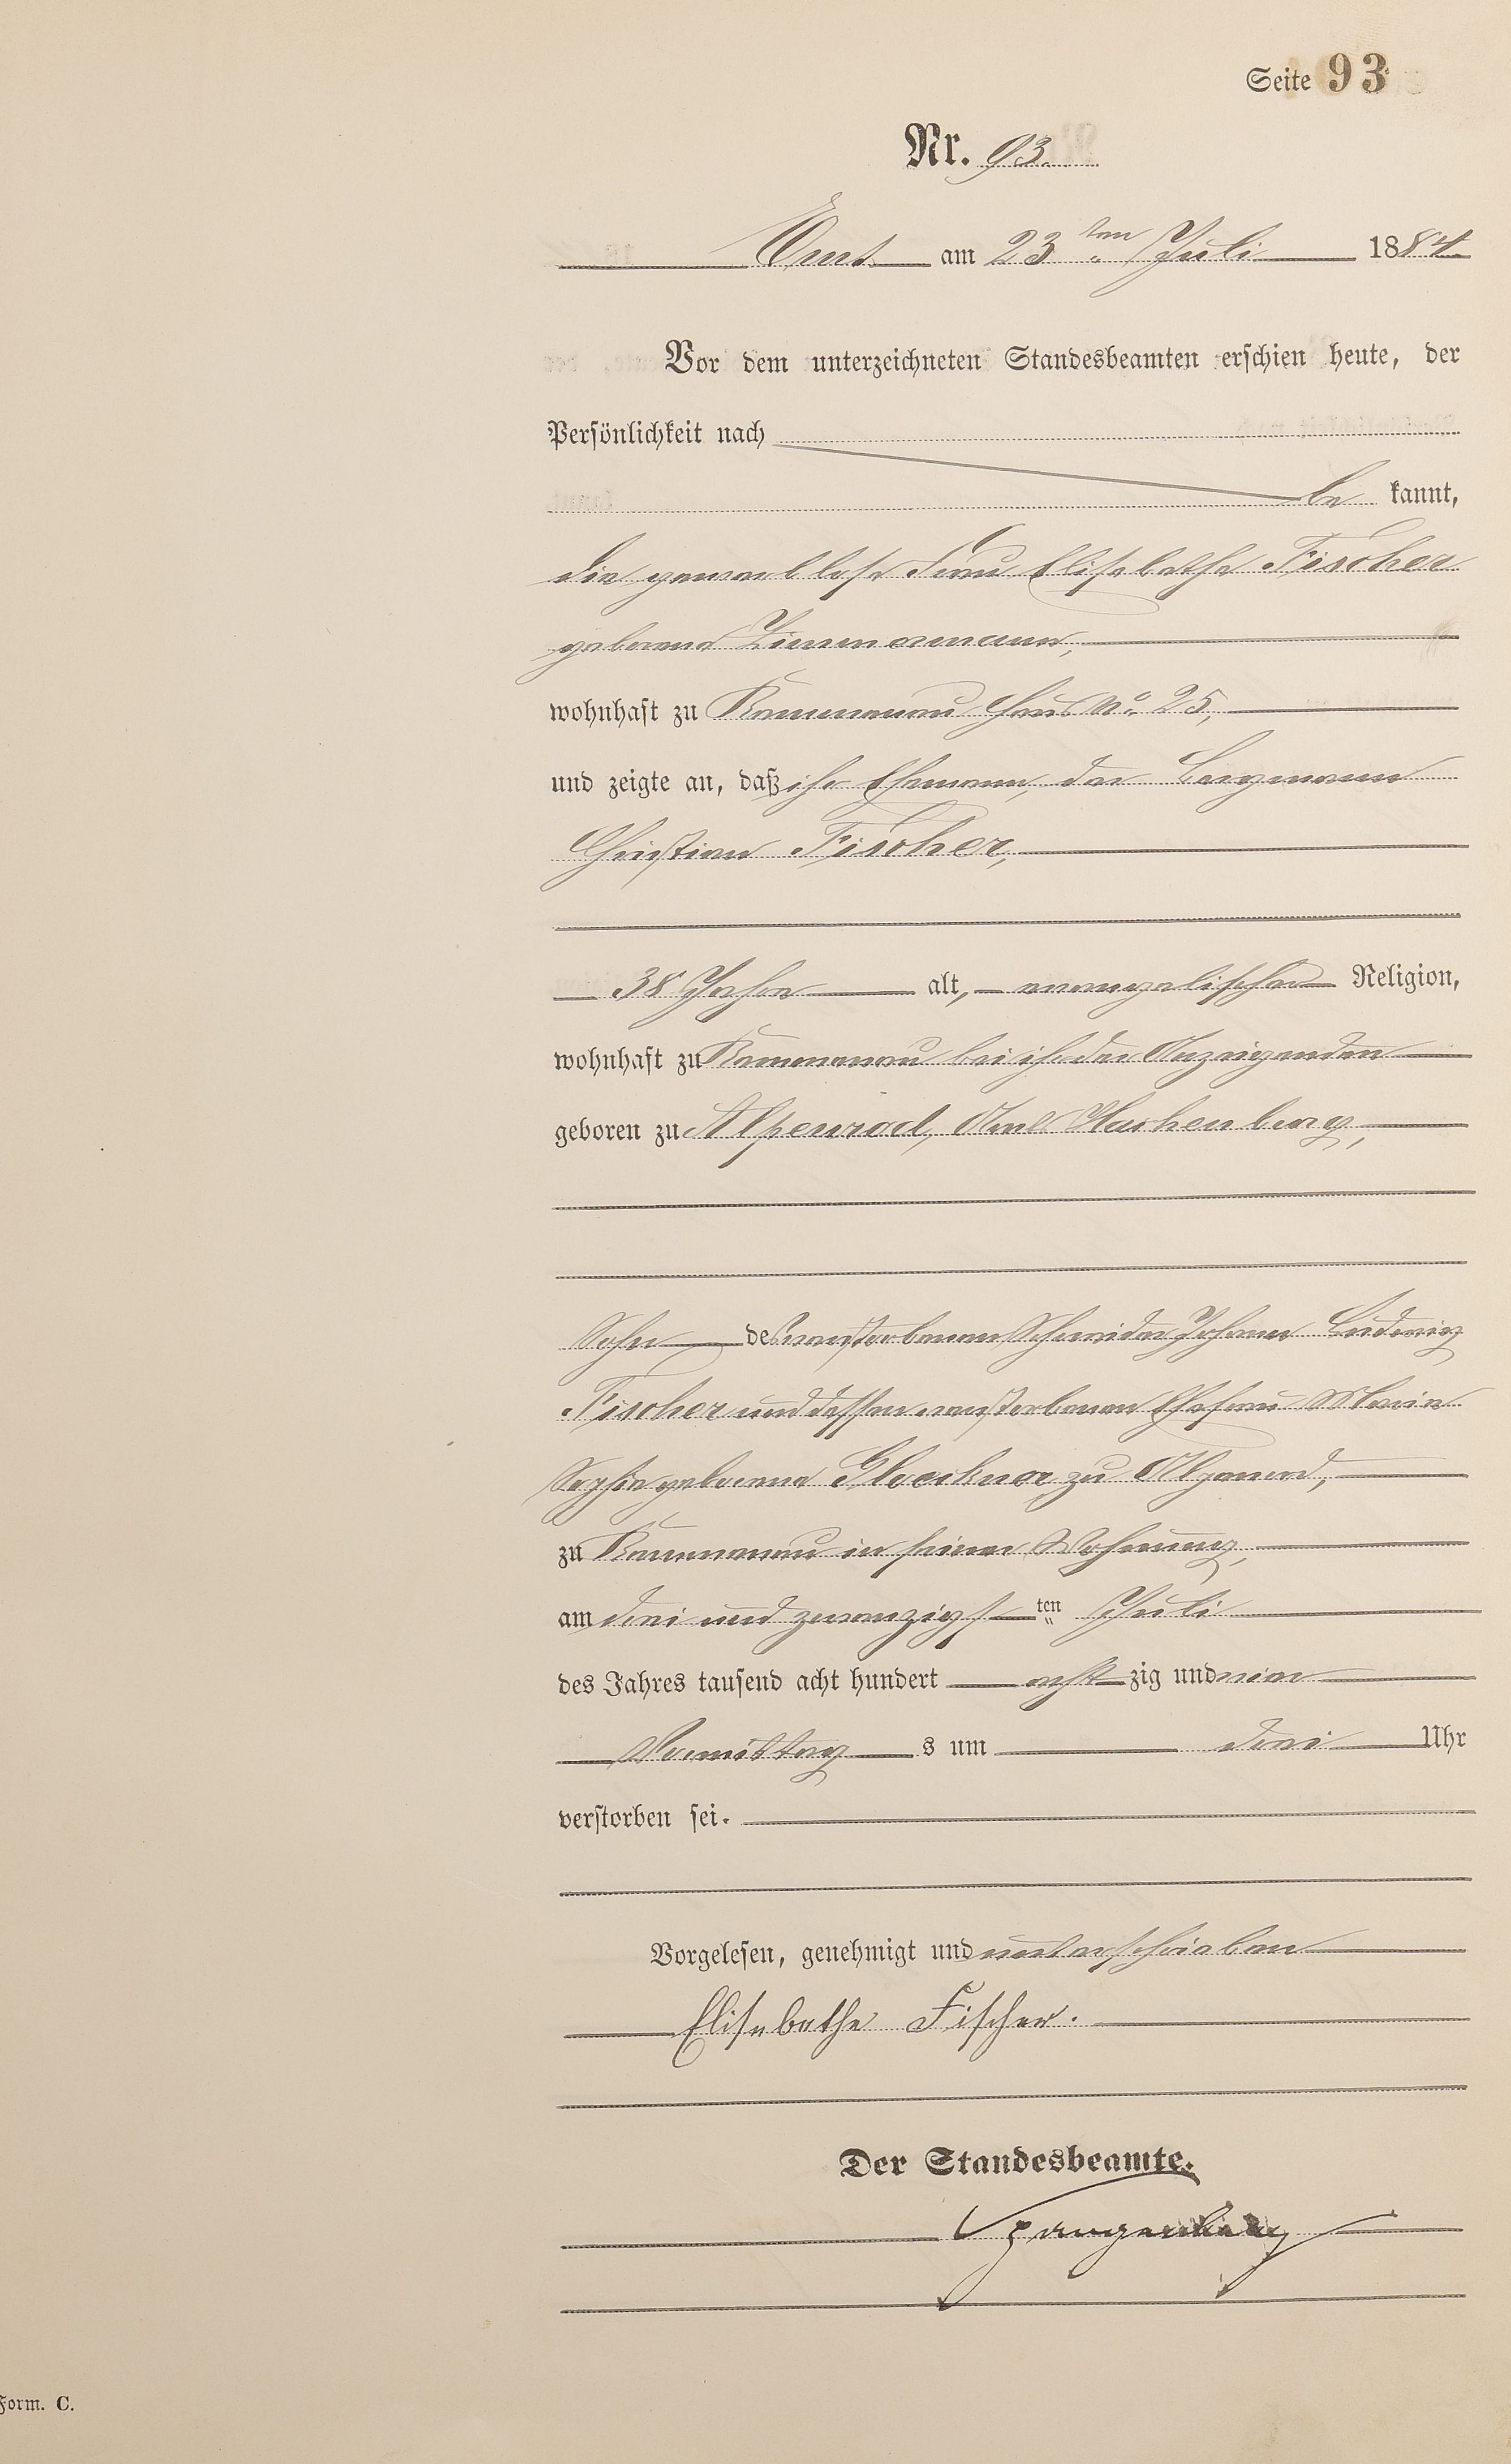 Seite 93
Nr. 93.
Ems am 23ten Juli 1884.
Vor dem unterzeichneten Standesbeamten erschien heute, der
Persönlichkeit nach
be kannt,
die gewerblose Frau Elisabetha Fischer
geborene Zimmermann,
wohnhaft zu Kemmenau Haus No. 25,
und zeigte an, daß ihr Ehemann, der Bergmann
Christian Fischer,
38 Jahre alt, evangelischer Religion,
wohnhaft zu Kemmenau bei ihr der Anzeigenden
geboren zu Alpenrod, Amts Hachenburg,
Sohn des verstorbenen Schneider Johann Ludwig
Fischer und dessen verstorbenen Ehefrau Marie
Sophie geborene Gloeckner zu Alpenrod,
zu Kemmenau in seiner Wohnung,
am drei und zwanzigsten Juli
des Jahres tausend acht hundert acht zig und vier
Vormittag s um drei Uhr
verstorben sei.
Vorgelesen, genehmigt und unterschrieben
Elisabethe Fischer.
Der Standesbeamte.
Spangenberg
Form. C.